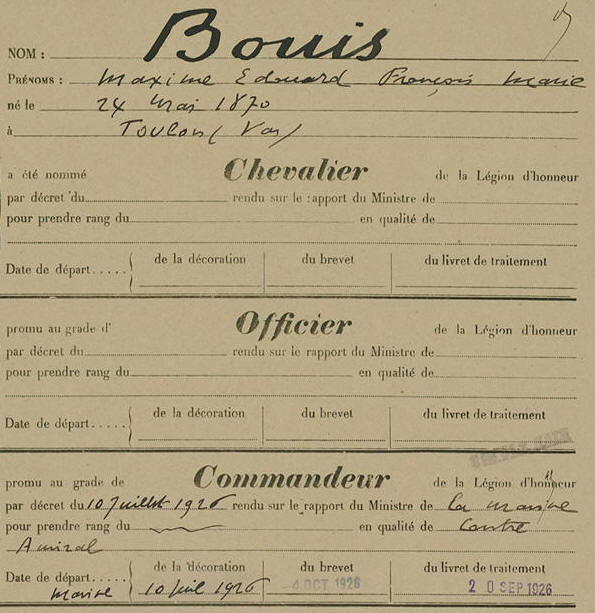 NOM : Bouis
PRÉNOMS : Maxime Edouard François Marie
né le 24 Mai 1870
à Toulon (Var)
a été nommé Chevalier de la Légion d'honneur
par décret du rendu sur le rapport du Ministre de
pour prendre rang du en qualité de
Date de départ..... de la décoration du brevet du livret de traitement
promu au grade d' Officier de la Légion d'honneur
par décret du rendu sur le rapport du Ministre de
pour prendre rang du en qualité de
Date de départ..... de la décoration du brevet du livret de traitement
promu au grade de Commandeur de la Légion d'honneur
par décret du 10 Juillet 1926 rendu sur le rapport du Ministre de la Marine
pour prendre rang du en qualité de Contre
Amiral
Date de départ..... de la décoration du brevet du livret de traitement
Marine 10 Juil 1926 4 OCT 1926 20 SEP 1926